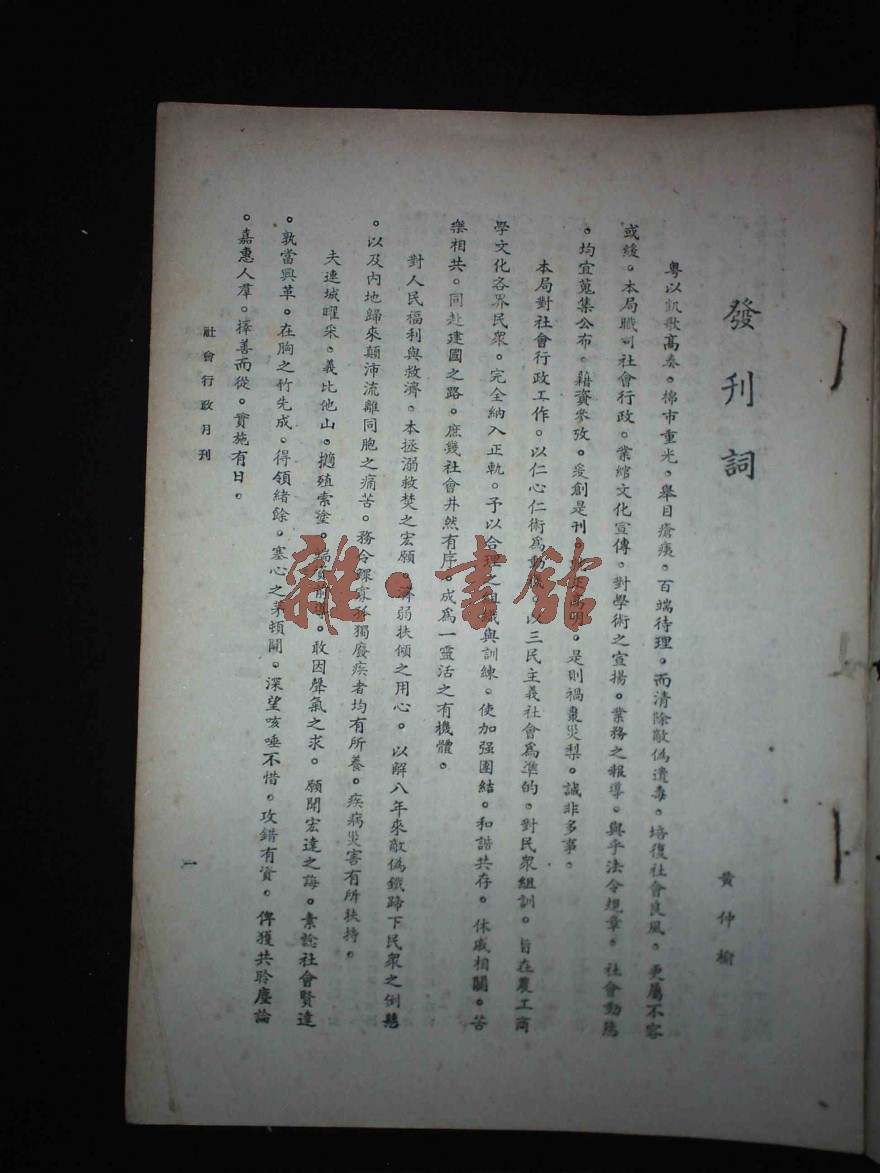 發刊詞
黃仲榆
粵以凱歌高奏。棉市重光。舉目瘡痍。百端待理。而清除敵偽遺毒。培復社會良風。更屬不容
或緩。本局職司社會行政。業綰文化宣傳。對學術之宣揚。業務之報導。與乎法令規章。社會動態
。均宜蒐集公布。藉資參攷。爰創是刊。高明。是則禍棗災梨。誠非多事。
本局對社會行政工作。以仁心仁術為動。以三民主義社會為準的。對民衆組訓。旨在農工商
學文化各界民衆。完全納入正軌。予以合理之組織與訓練。使加强團結。和諧共存。休戚相關。苦
樂相共。同赴建國之路。庶幾社會井然有序。成為一靈活之有機體。
對人民福利與救濟。本拯溺救焚之宏願。濟弱扶傾之用心。以解八年來敵偽鐵蹄下民衆之倒懸
。以及內地歸來顛沛流離同胞之痛苦。務令鰥寡孤獨廢疾者均有所養。疾病災害有所扶持。
夫連城曜采。義比他山。擿殖索塗。前導。敢因聲氣之求。願聞宏達之誨。素諗社會賢達
。孰當興革。在胸之竹先成。得領緒餘。塞心之茅頓開。深望咳唾不惜。攻錯有資。俾獲共聆塵論
。嘉惠人羣。擇善而從。實施有日。
社會行政月刊
一
雜·書館